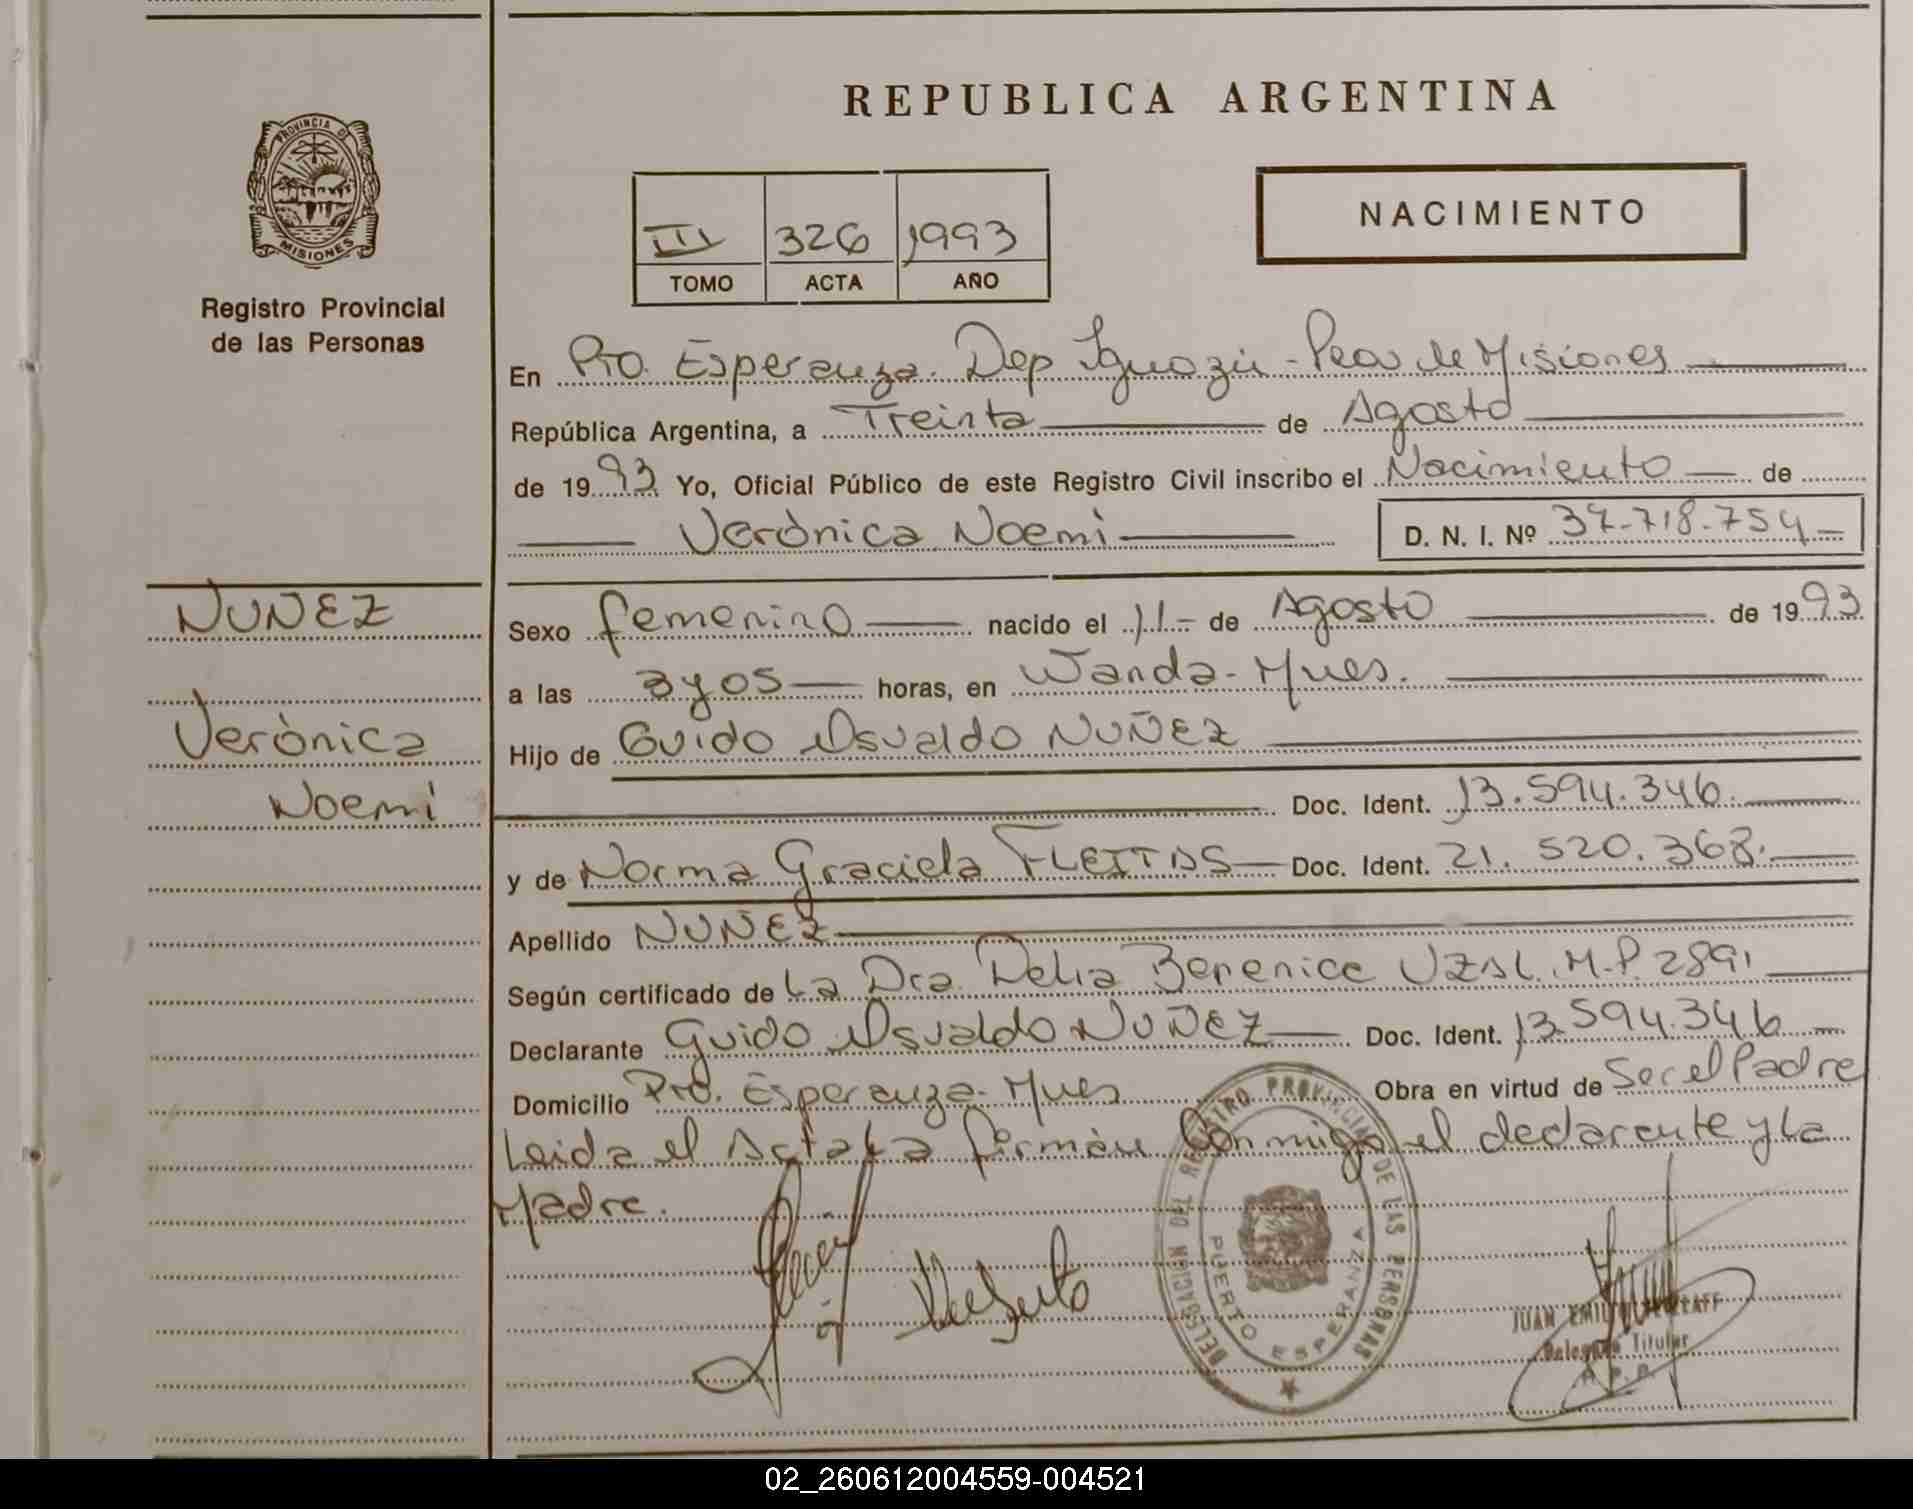 REPUBLICA ARGENTINA
PROVINCIA D
MISIONES
Registro Provincial
de las Personas
III 326 1993
TOMO ACTA AÑO
NACIMIENTO
En Pto. Esperanza. Dep Iguazú - Pcia de Misiones
República Argentina, a Treinta de Agosto
de 1993 Yo, Oficial Público de este Registro Civil inscribo el Nacimiento de
Verónica Noemi D. N. I. Nº 37.718.754
NUÑEZ
Verónica
Noemí
Sexo femenino nacido el 11 de Agosto de 1993
a las 3 y 05 horas, en Wanda - Mnes.
Hijo de Guido Osvaldo NUÑEZ
Doc. Ident. 13.594.346.
y de Norma Graciela FLEITAS Doc. Ident. 21.520.368.
Apellido NUÑEZ
Según certificado de La Dra. Delia Berenice UZAL. M.P. 2891
Declarante Guido Osvaldo NUÑEZ Doc. Ident. 13.594.346
Domicilio Pto. Esperanza - Mnes Obra en virtud de Ser el Padre
Leida el Acta La firmán Conmigo el declarante y La
Madre.
DELEGACION DEL REGISTRO PROVINCIAL DE LAS PERSONAS
PUERTO ESPERANZA
JUAN
Titular
R. P. P.
02_260612004559-004521